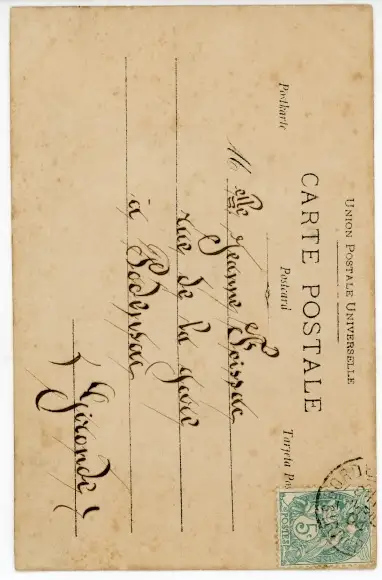 UNION POSTALE UNIVERSELLE
CARTE POSTALE
Postkarte Postcard Tarjeta Pos
Melle Jeanne Boissac
rue de la gare
à Podensac
(Gironde)
5
POSTES